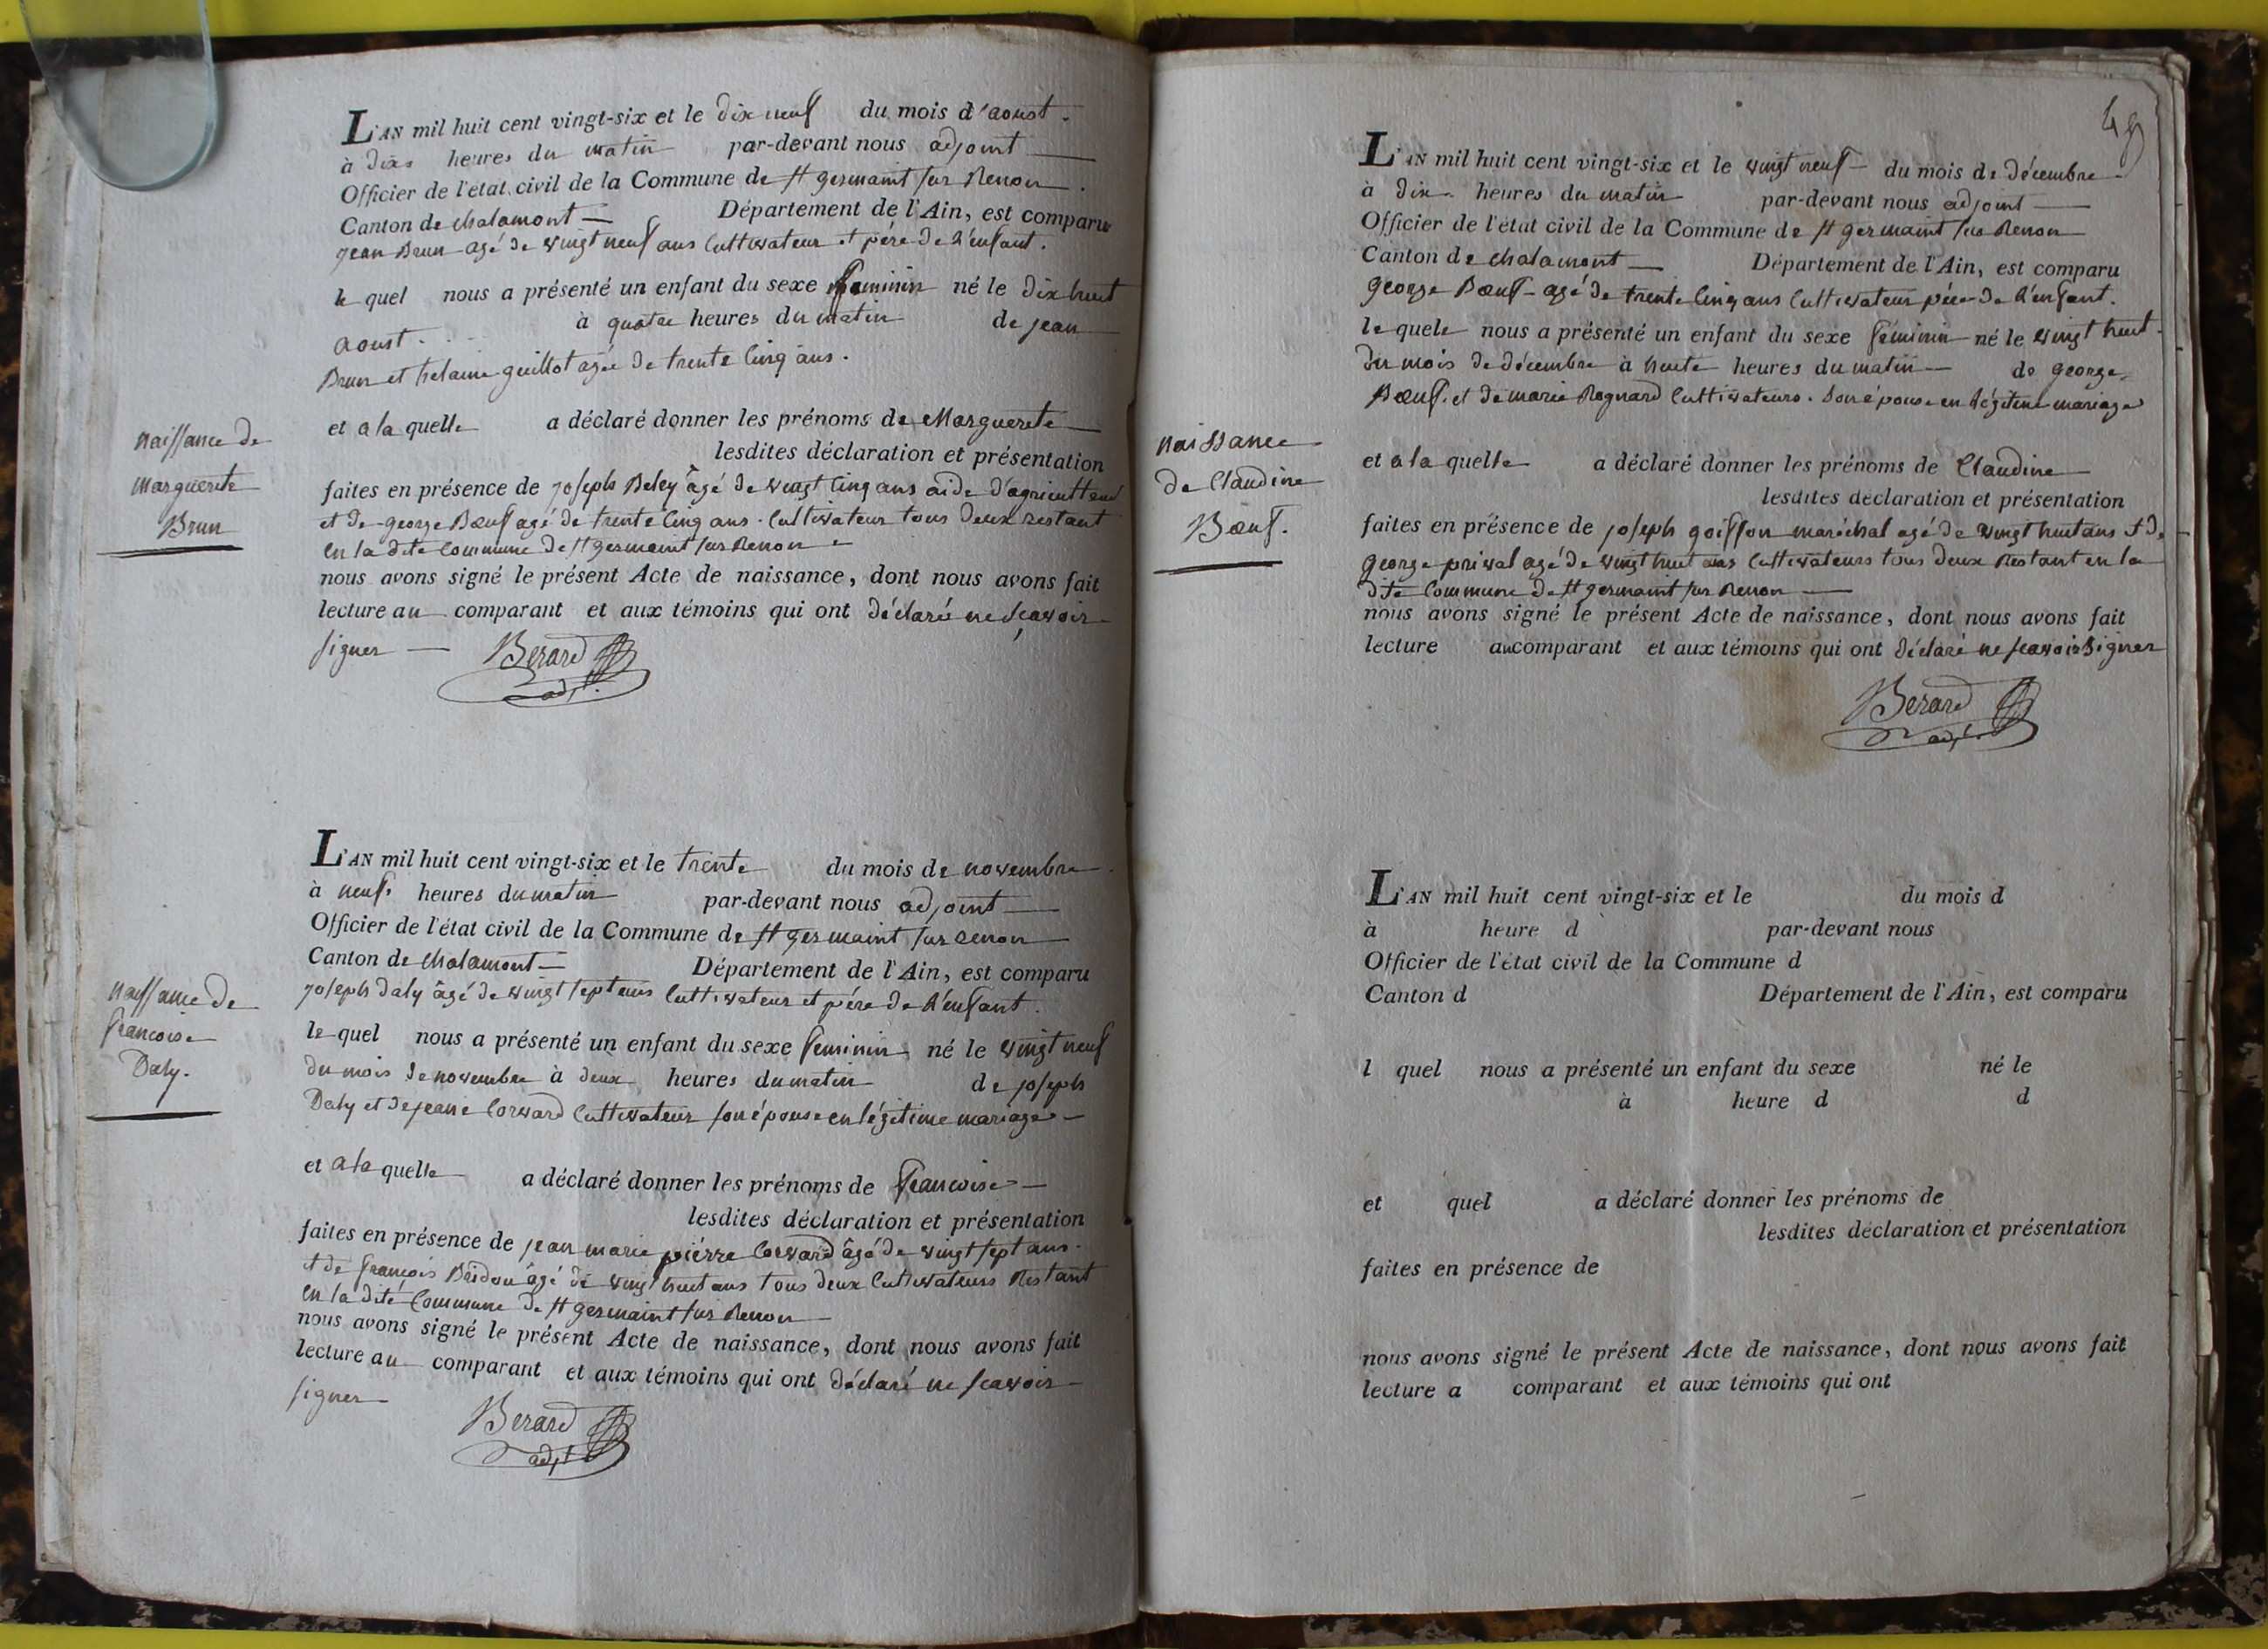 L'AN mil huit cent vingt-six et le dix neuf du mois d'aoust.
à dix heures du matin par-devant nous adjoint
Officier de l'état civil de la Commune de st germaint sur Renon.
Canton de chalamont Département de l'Ain, est comparu
jean Brun agé de vingt neuf ans Cultivateur et pére de l'enfant.
le quel nous a présenté un enfant du sexe feminin né le dix huit
aoust. à quatre heures du matin de jean
Brun et helaine guillot agée de trente cinq ans.
naissance de
Marguerite
Brun
et a la quelle a déclaré donner les prénoms de Marguerite
lesdites déclaration et présentation
faites en présence de joseph Beley âgé de vingt cinq ans aide d'agriculteur
et de george Bœuf agé de trente cinq ans. Cultivateur tous deux restant
en la dite Commune de st germaint sur Renon
nous avons signé le présent Acte de naissance, dont nous avons fait
lecture au comparant et aux témoins qui ont déclaré ne scavoir
signer Berard
adjt.
L'AN mil huit cent vingt-six et le trente du mois de novembre
à neuf heures du matin par-devant nous adjoint
Officier de l'état civil de la Commune de st germaint sur renon
Canton de chalamont Département de l'Ain, est comparu
joseph Daly âgé de vingt sept ans Cultivateur et pére de l'enfant.
naissance de
francoise
Daly.
le quel nous a présenté un enfant du sexe feminin né le vingt neuf
du mois de novembre à deux heures du matin de joseph
Daly et de jeane Corward Cultivateur son épouse en légitime mariage
et a la quelle a déclaré donner les prénoms de francoise
lesdites déclaration et présentation
faites en présence de jean marie piérre Corward âgé de vingt sept ans.
et de françois Bridon âgé de vingt huit ans tous deux Cultivateurs Restant
en la dite Commune de st germaint sur Renon
nous avons signé le présent Acte de naissance, dont nous avons fait
lecture au comparant et aux témoins qui ont déclaré ne scavoir
signer
Berard
adjt
49
L'AN mil huit cent vingt-six et le vingt neuf du mois de décembre
à dix heures du matin par-devant nous adjoint
Officier de l'état civil de la Commune de st germaint sur Renon
Canton de chalamont Département de l'Ain, est comparu
george Bœuf agé de trente cinq ans Cultivateur pére de l'enfant.
le quele nous a présenté un enfant du sexe féminin né le vingt huit
du mois de décembre à huite heures du matin de george
Bœuf. et de marie Rognard Cultivateurs. son épouse en légitime mariage
naissance
de Claudine
Bœuf.
et a la quelle a déclaré donner les prénoms de Claudine
lesdites déclaration et présentation
faites en présence de joseph goiffon maréchal agé de vingt huit ans et de
george prival agé de vingt huit ans Cultivateurs tous deux Restant en la
dite Commune de st germaint sur Renon
nous avons signé le présent Acte de naissance, dont nous avons fait
lecture au comparant et aux témoins qui ont déclaré ne scavoir signer
Berard
adjt.
L'AN mil huit cent vingt-six et le du mois d
à heure d par-devant nous
Officier de l'état civil de la Commune d
Canton d Département de l'Ain, est comparu
l quel nous a présenté un enfant du sexe né le
à heure d d
et quel a déclaré donner les prénoms de
lesdites déclaration et présentation
faites en présence de
nous avons signé le présent Acte de naissance, dont nous avons fait
lecture a comparant et aux témoins qui ont